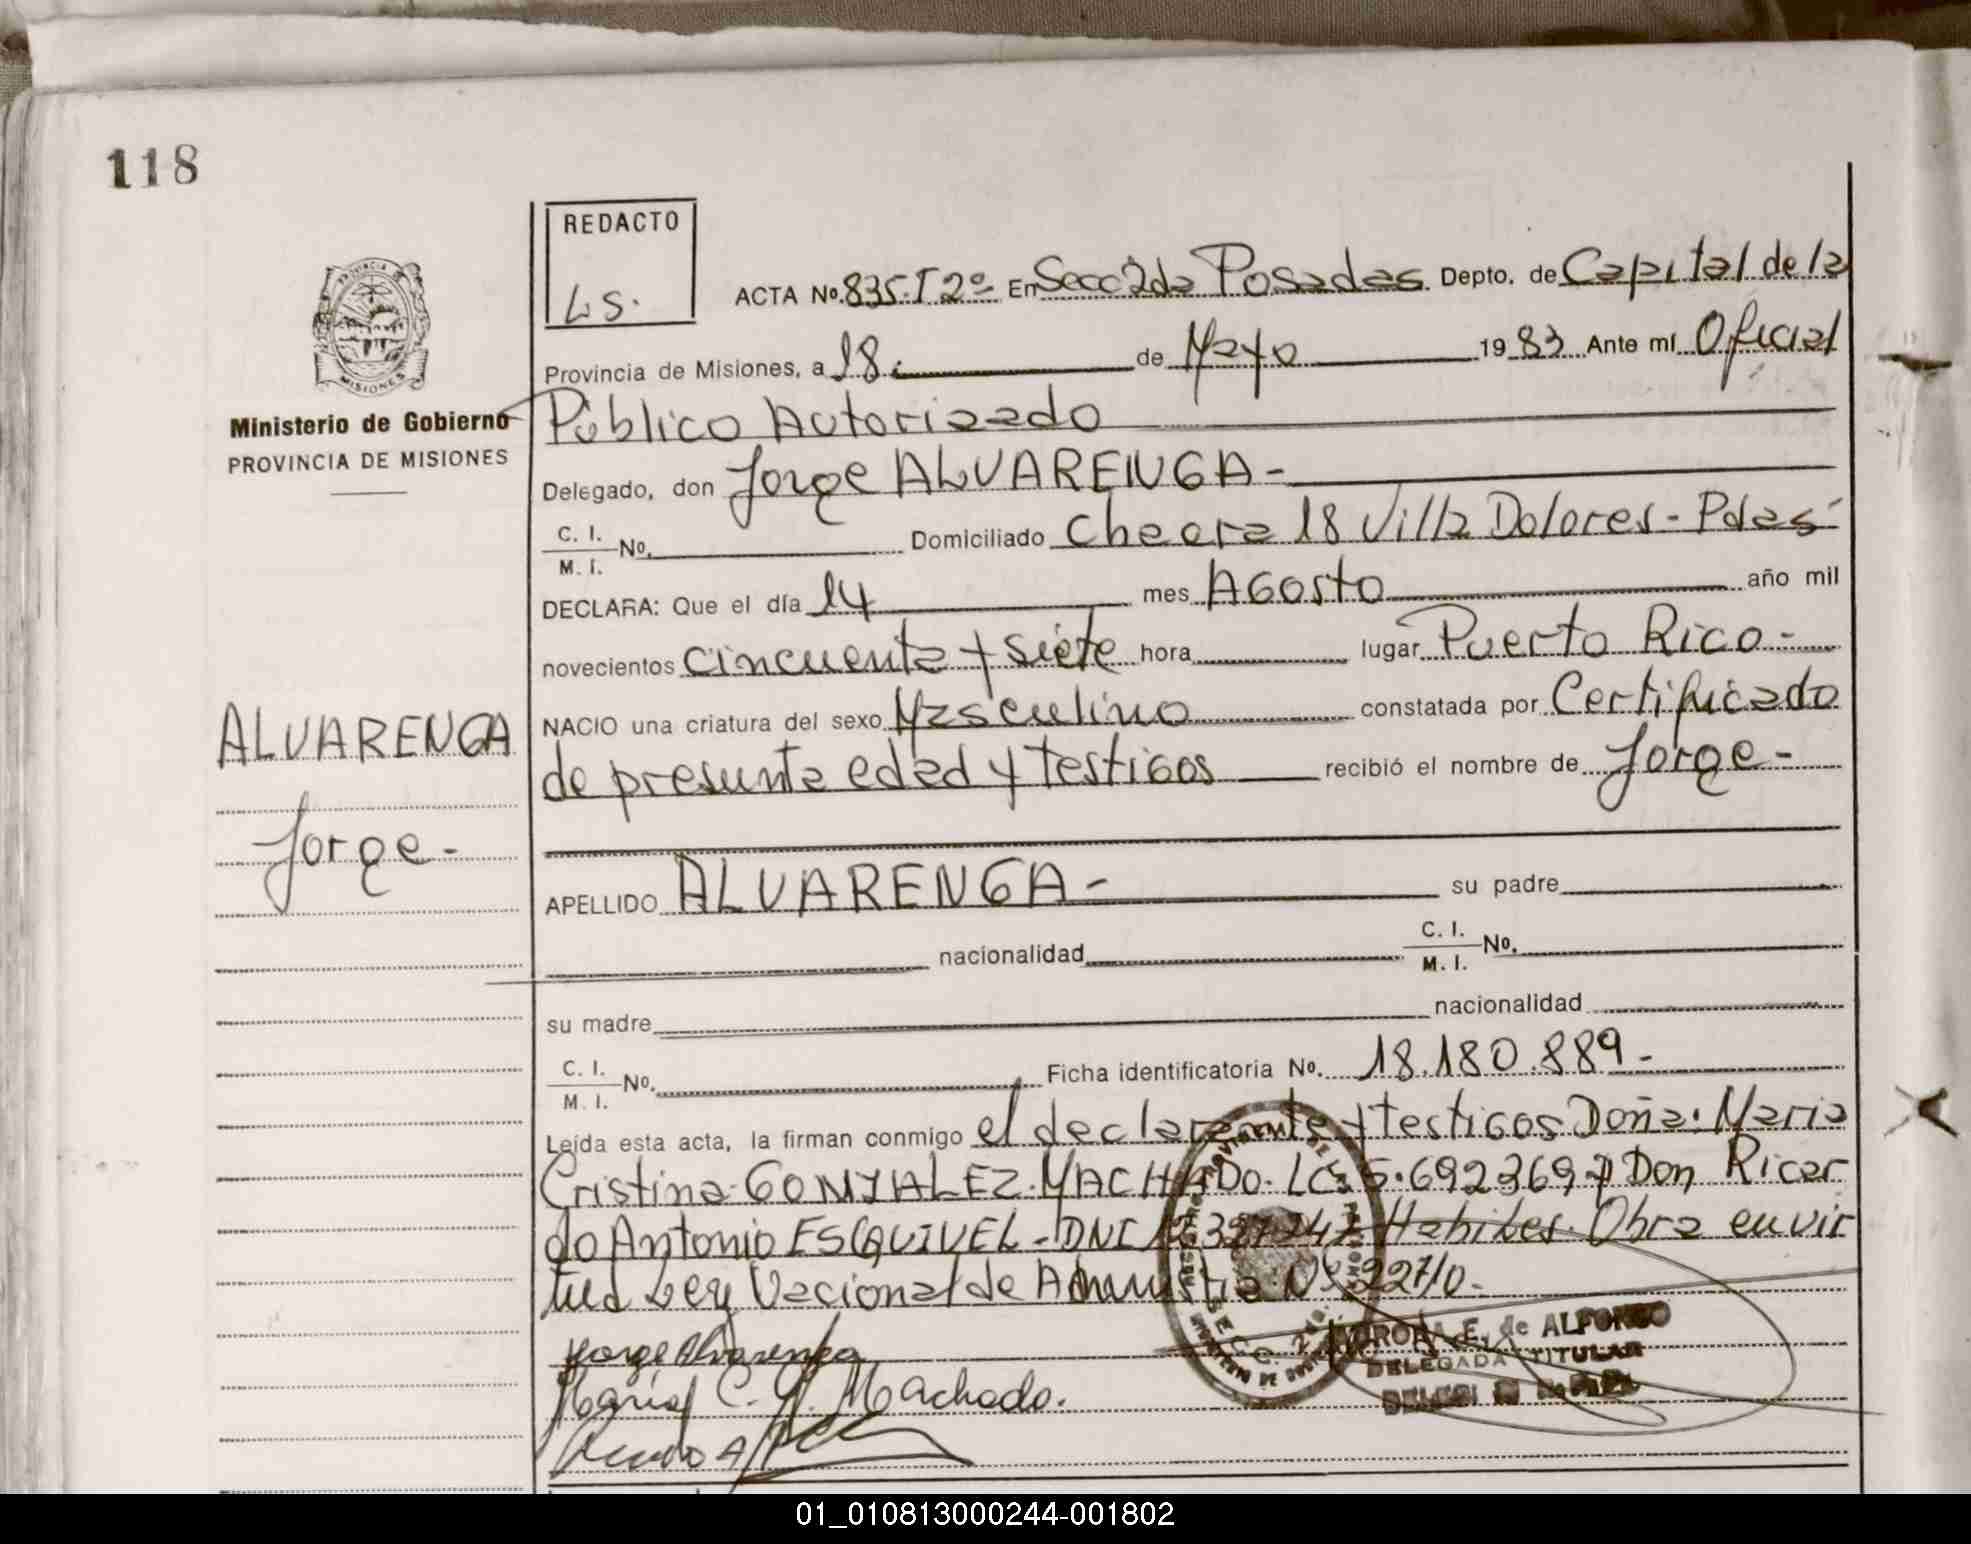 118
REDACTO
Ls.
ACTA No. 835. T 2º En Secc 2da Posadas Depto. de Capital de la
Provincia de Misiones, a 18. de Mayo 1983 Ante mí Oficial
Público Autorizado
Delegado, don Jorge ALVARENGA -
C. I.
M. I. No. Domiciliado Chacra 18 Villa Dolores - Pdas
DECLARA: Que el día 14 mes Agosto año mil
novecientos cincuenta y siete hora lugar Puerto Rico -
NACIO una criatura del sexo Masculino constatada por Certificado
de presunta edad y testigos recibió el nombre de Jorge -
APELLIDO ALVARENGA - su padre
nacionalidad C. I.
M. I. No.
su madre nacionalidad
C. I.
M. I. No. Ficha identificatoria No. 18.180.889 -
Leída esta acta, la firman conmigo el declarante y testigos Doña: Maria
Cristina GONZALEZ MACHADO. LC. 5.692369 y Don Ricar
do Antonio ESQUIVEL - DNI Habiles. Obra en vir
tud Ley Nacional de Amnistia Nº 22710 -
Jorge Alvarenga
María C. G. Machado.
Ministerio de Gobierno
PROVINCIA DE MISIONES
PROVINCIA DE
MISIONES
ALVARENGA
Jorge -
SECC. 2da.
AURORA E. de ALFONSO
DELEGADA TITULAR
01_010813000244-001802